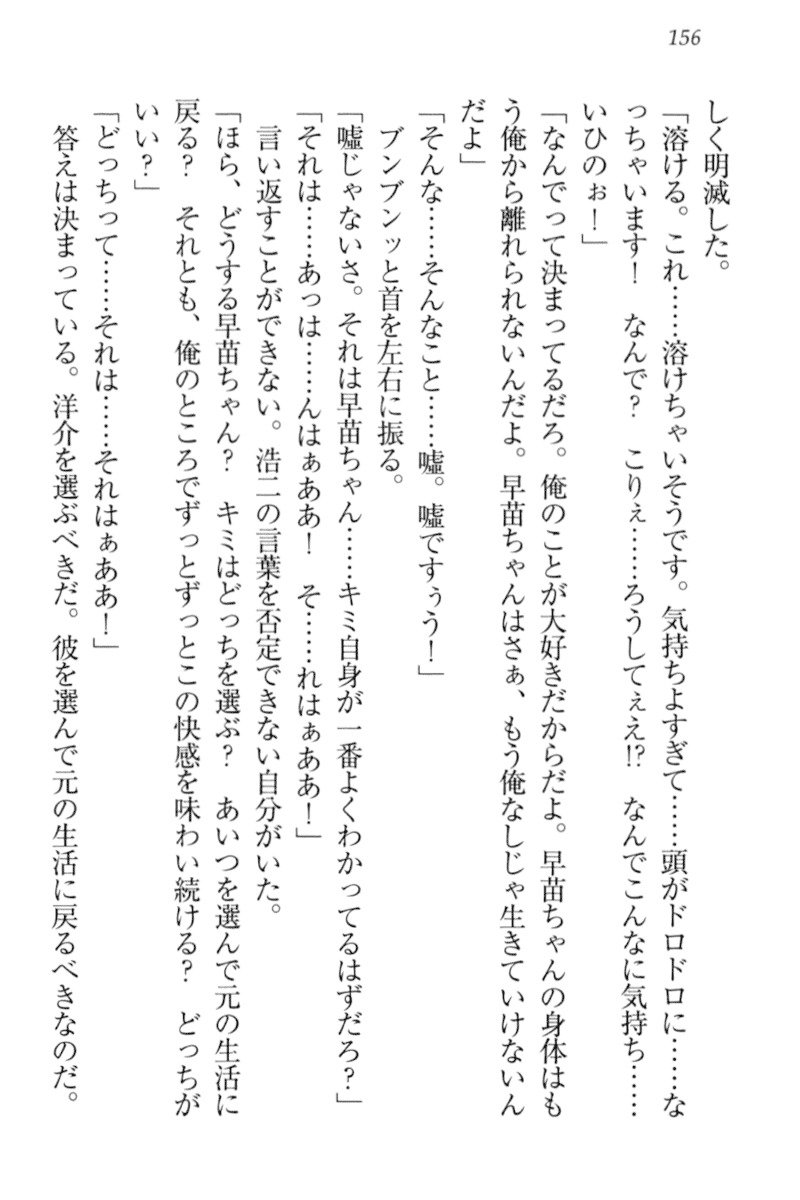 156
しく明滅した。
「溶ける。これ……溶けちゃいそうです。気持ちよすぎて……頭がドロドロに……な
っちゃいます！　なんで？　こりぇ……ろうしてぇえ!?　なんでこんなに気持ち……
いひのぉ！」
「なんでって決まってるだろ。俺のことが大好きだからだよ。早苗ちゃんの身体はも
う俺から離れられないんだよ。早苗ちゃんはさぁ、もう俺なしじゃ生きていけないん
だよ」
「そんな……そんなこと……嘘。嘘ですぅう！」
　ブンブンッと首を左右に振る。
「嘘じゃないさ。それは早苗ちゃん……キミ自身が一番よくわかってるはずだろ？」
「それは……あっは……んはぁああ！　そ……れはぁああ！」
　言い返すことができない。浩二の言葉を否定できない自分がいた。
「ほら、どうする早苗ちゃん？　キミはどっちを選ぶ？　あいつを選んで元の生活に
戻る？　それとも、俺のところでずっとずっとこの快感を味わい続ける？　どっちが
いい？」
「どっちって……それは……それはぁああ！」
　答えは決まっている。洋介を選ぶべきだ。彼を選んで元の生活に戻るべきなのだ。